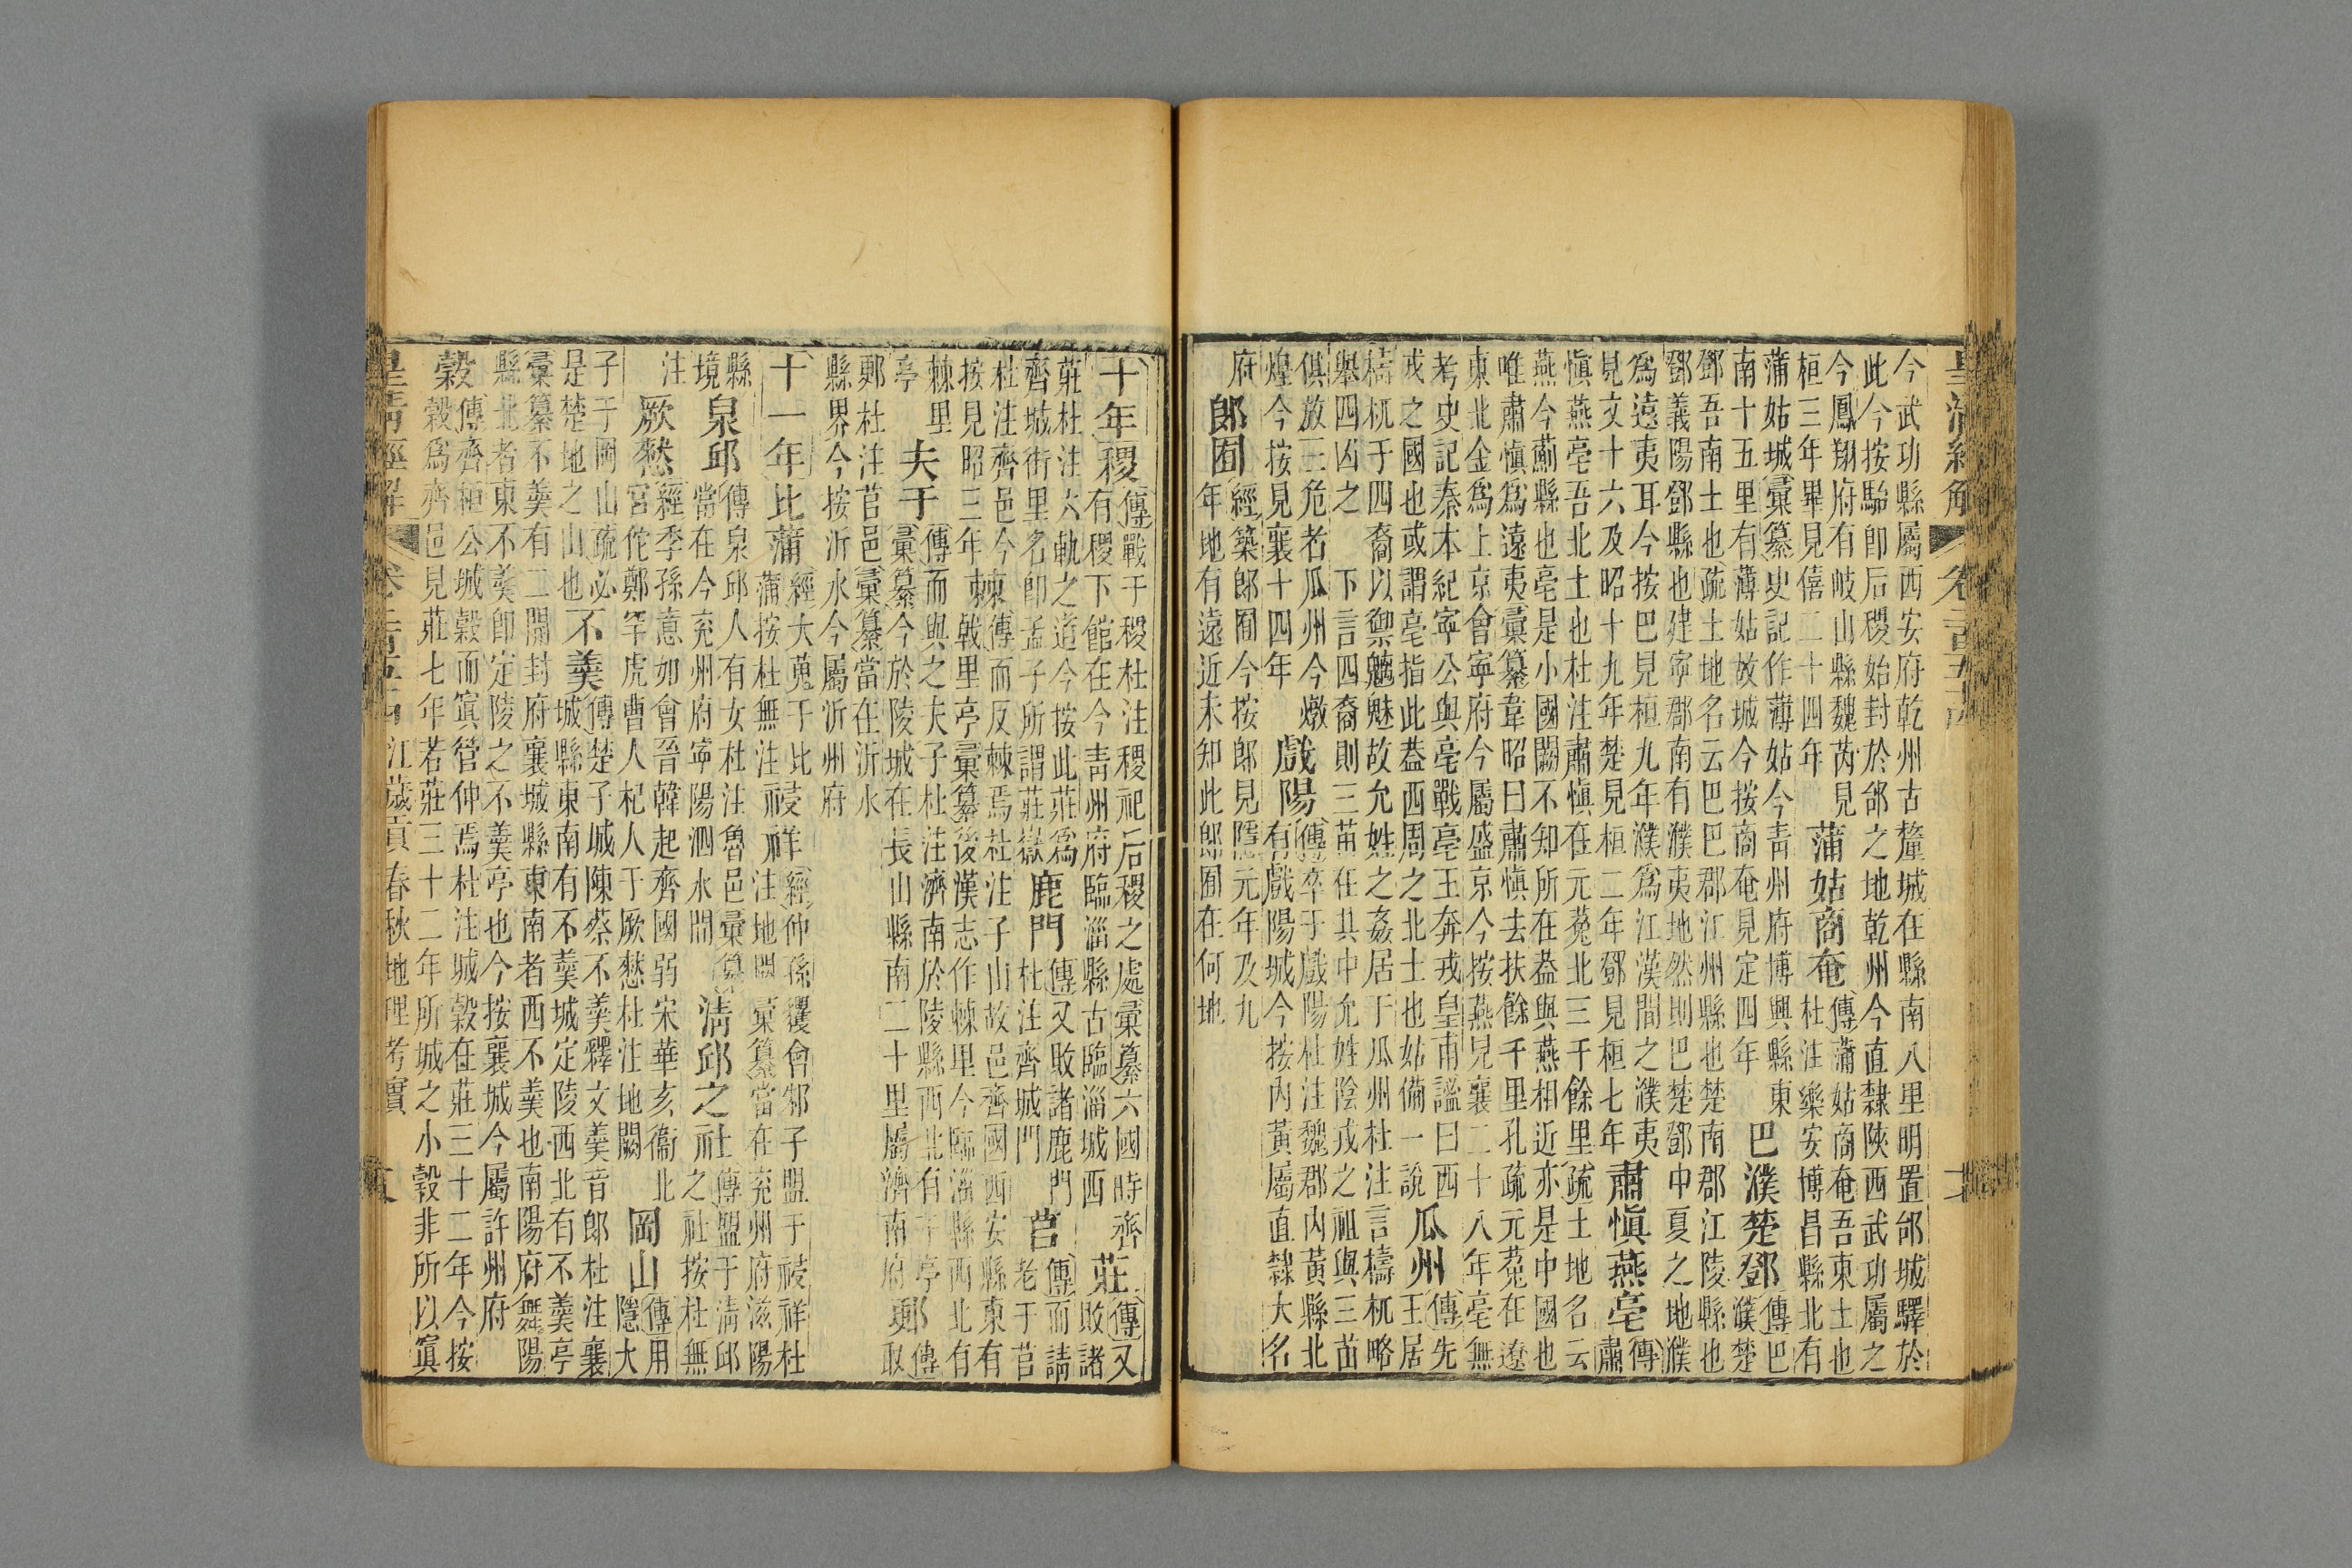 今武功縣屬西安府乾州古釐城在縣南八里明置邰城驛於
此今按駘卽后稷始封於邰之地乾州今直隸陝西武功屬之
今鳳翔府有岐山縣魏芮見
桓三年畢見僖二十四年
蒲姑商奄
傳蒲姑商奄吾東土也
杜注樂安博昌縣北有
蒲姑城彙纂史記作薄姑今靑州府博興縣東
南十五里有薄姑故城今按商奄見定四年
巴濮楚鄧
傳巴
濮楚
鄧吾南土也疏土地名云巴巴郡江州縣也楚南郡江陵縣也
鄧義陽鄧縣也建寧郡南有濮夷地然則巴楚鄧中夏之地濮
爲遠夷耳今按巴見桓九年濮爲江漢間之濮夷
見文十六及昭十九年楚見桓二年鄧見桓七年
肅愼燕亳
傳
肅
愼燕亳吾北土也杜注肅愼在元菟北三千餘里疏土地名云
燕今薊縣也亳是小國闕不知所在葢與燕相近亦是中國也
唯肅愼爲遠夷彙纂韋昭曰肅愼去扶餘千里孔疏元菟在遼
東北金爲上京會寧府今屬盛京今按燕見襄二十八年亳無
考史記秦本紀寧公與亳戰亳王奔戎皇甫謐曰西
戎之國也或謂亳指此葢西周之北土也姑備一說
瓜州
傳先
王居
檮杌于四裔以禦魑魅故允姓之姦居于瓜州杜注言檮杌略
舉四凶之 下言四裔則三苗在其中允姓陰戎之祖與三苗
俱放三危者瓜州今燉
煌今按見襄十四年
戲陽
傳卒于戲陽杜注魏郡內黃縣北
有戲陽城今按內黃屬直隸大名
府
郎囿
經築郎囿今按郎見隱元年及九
年地有遠近未知此郎囿在何地
十年稷
傳戰于稷杜注稷祀后稷之處彙纂六國時齊
有稷下館在今靑州府臨淄縣古臨淄城西
莊
傳又
敗諸
莊杜注六軌之道今按此莊爲
齊城街里名卽孟子所謂莊嶽
鹿門
傳又敗諸鹿門
杜注齊城門
莒
傳而請
老于莒
杜注齊邑今
按見昭三年
棘
傳而反棘焉杜注子山故邑齊國西安縣東有
戟里亭彙纂後漢志作棘里今臨淄縣西北有
棘里
亭
夫于
傳而與之夫于杜注濟南於陵縣西北有于亭
彙纂今於陵城在長山縣南二十里屬濟南府
郠
傳
取
郠杜注莒邑彙纂當在沂水
縣界今按沂水今屬沂州府
十一年比蒲
經大蒐于比
蒲按杜無注
祲祥
經仲孫貜會邾子盟于祲祥杜
注地闕彙纂當在兖州府滋陽
縣
境
泉邱
傳泉邱人有女杜注魯邑彙纂
當在今兖州府寧陽泗水間
淸邱之社
傳盟于淸邱
之社按杜無
注
厥憖
經季孫意如會晉韓起齊國弱宋華亥衞北
宮佗鄭罕虎曹人杞人于厥憖杜注地闕
岡山
傳用
隱大
子于岡山疏必
是楚地之山也
不羹
傳楚子城陳蔡不羹釋文羹音郎杜注襄
城縣東南有不羹城定陵西北有不羹亭
彙纂不羹有二開封府襄城縣東南者西不羹也南陽府舞陽
縣北者東不羹卽定陵之不羹亭也今按襄城今屬許州府
穀
傳齊桓公城穀而寘管仲焉杜注城穀在莊三十二年今按
穀爲齊邑見莊七年若莊三十二年所城之小穀非所以寘
皇淸經解
江歲貢春秋地理考實